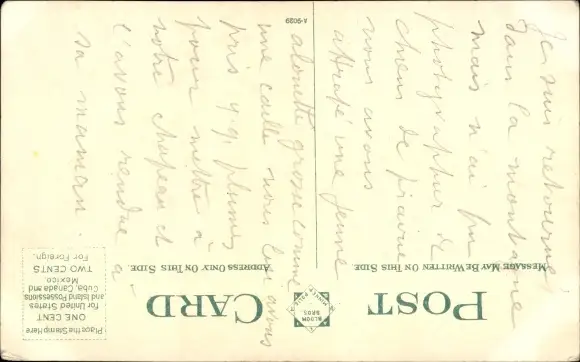 Je suis retourné
dans la montagne
mais n'ai pu
photographier de
chiens de prairie
nous avons
attrapé une jeune
alouette grosse comme
une caille nous lui avons
pris q.q. plumes
pour mettre à
notre chapeau et
l'avons rendue à
sa maman.
POST CARD
MESSAGE MAY BE WRITTEN ON THIS SIDE
ADDRESS ONLY ON THIS SIDE
BLOOM BROS.
A-9029
Place the Stamp Here
ONE CENT
for United States
and Island Possessions
Cuba, Canada and
Mexico.
TWO CENTS
For Foreign.